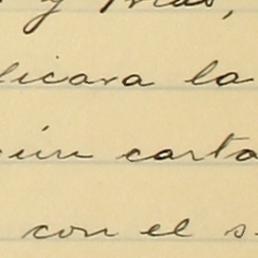 y
licara la
ún carta
con el s